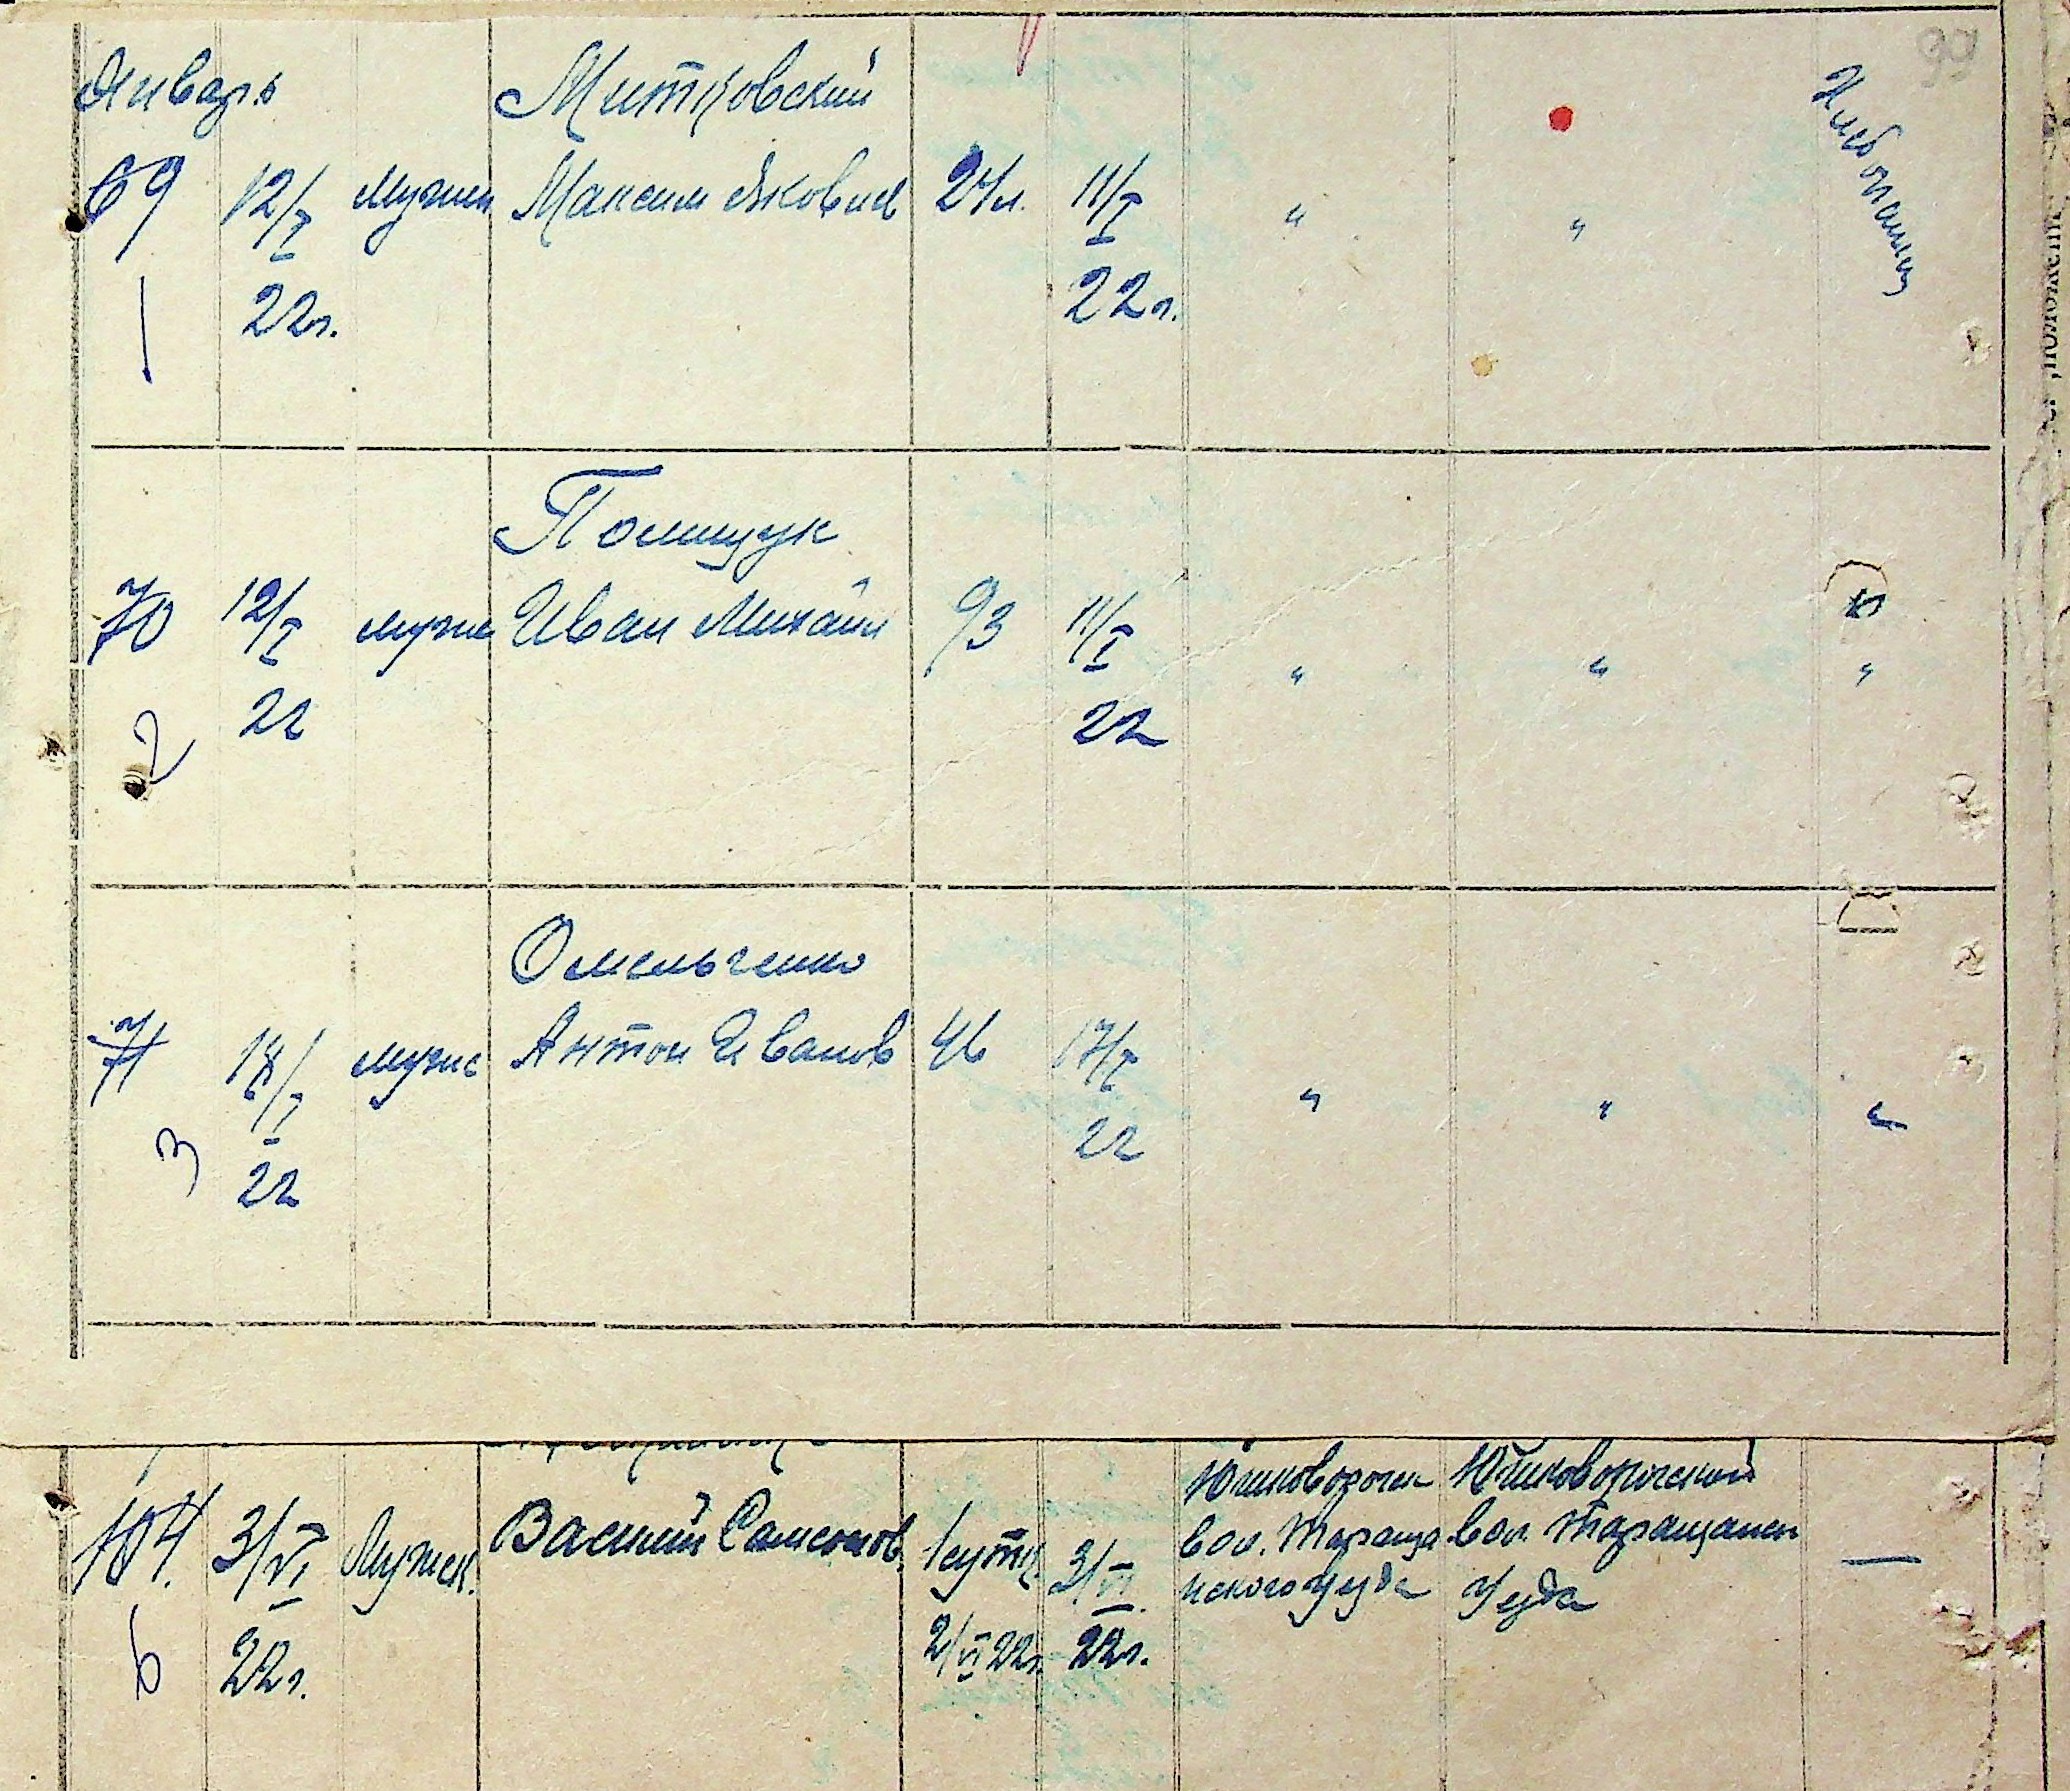 Январь
Митковский
69 12/I мужск Максим Яковлев 24л. 11/I " " Хлебопашец
1 22г. 22г.
Полищук
70 12/I мужск Иван Михайл 93 11/I " " "
2 22 22
Омельченко
71 18/I мужс Антон Иванов 46 17/I " " "
3 22 22
Юшковорогск Юшковорогский
104. 3/VI Мужск. Василий Самсонов. 1 сутк. 3/VI вол. Тараща вол. Таращанск —
нского уезда Уезда
6 22г. 2/VI 22г. 22г.